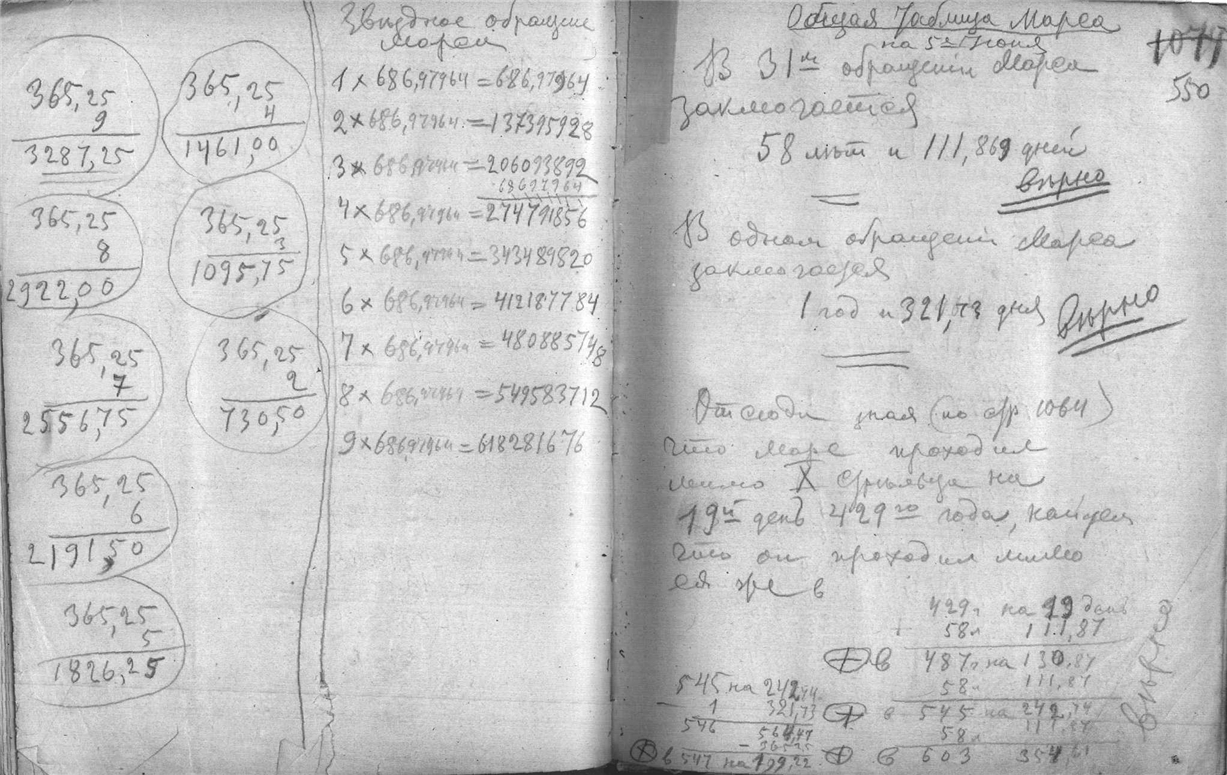 365,25
9
3287,25
365,25
4
1461,00
365,25
8
2922,00
365,25
3
1095,75
365,25
7
2556,75
365,25
2
730,50
365,25
6
2191,50
365,25
5
1826,25
Звѣздное обращение
Марса
1 × 686,97964 = 686,97964
2 × 686,97964 = 137395928
3 × 686,97964 = 206093892
68697964
4 × 686,97964 = 274791856
5 × 686,97964 = 343489820
6 × 686,97964 = 412187784
7 × 686,97964 = 480885748
8 × 686,97964 = 549583712
9 × 686,97964 = 618281676
Общая Таблица Марса
на 5ое Июня
1077
550
В 31м обращении Марса
заключается
58 лѣт и 111,869 дней
Вѣрно
В одном обращении Марса
заключается
1 год и 321,73 дня
Вѣрно
Отсюда зная (по стр 1064)
что Марс проходил
мимо X Стрѣльца на
19й день 429го года, найдем
что он проходил мимо
ея же в
429г на 19 день
58л 111,87
в 487г на 130,87
58л 111,87
в 545 на 242,74
58л 111,87
в 603 354,61
Вѣрно
545 на 242,74
1 321,73
546 564,47
365,25
в 547 на 199,22